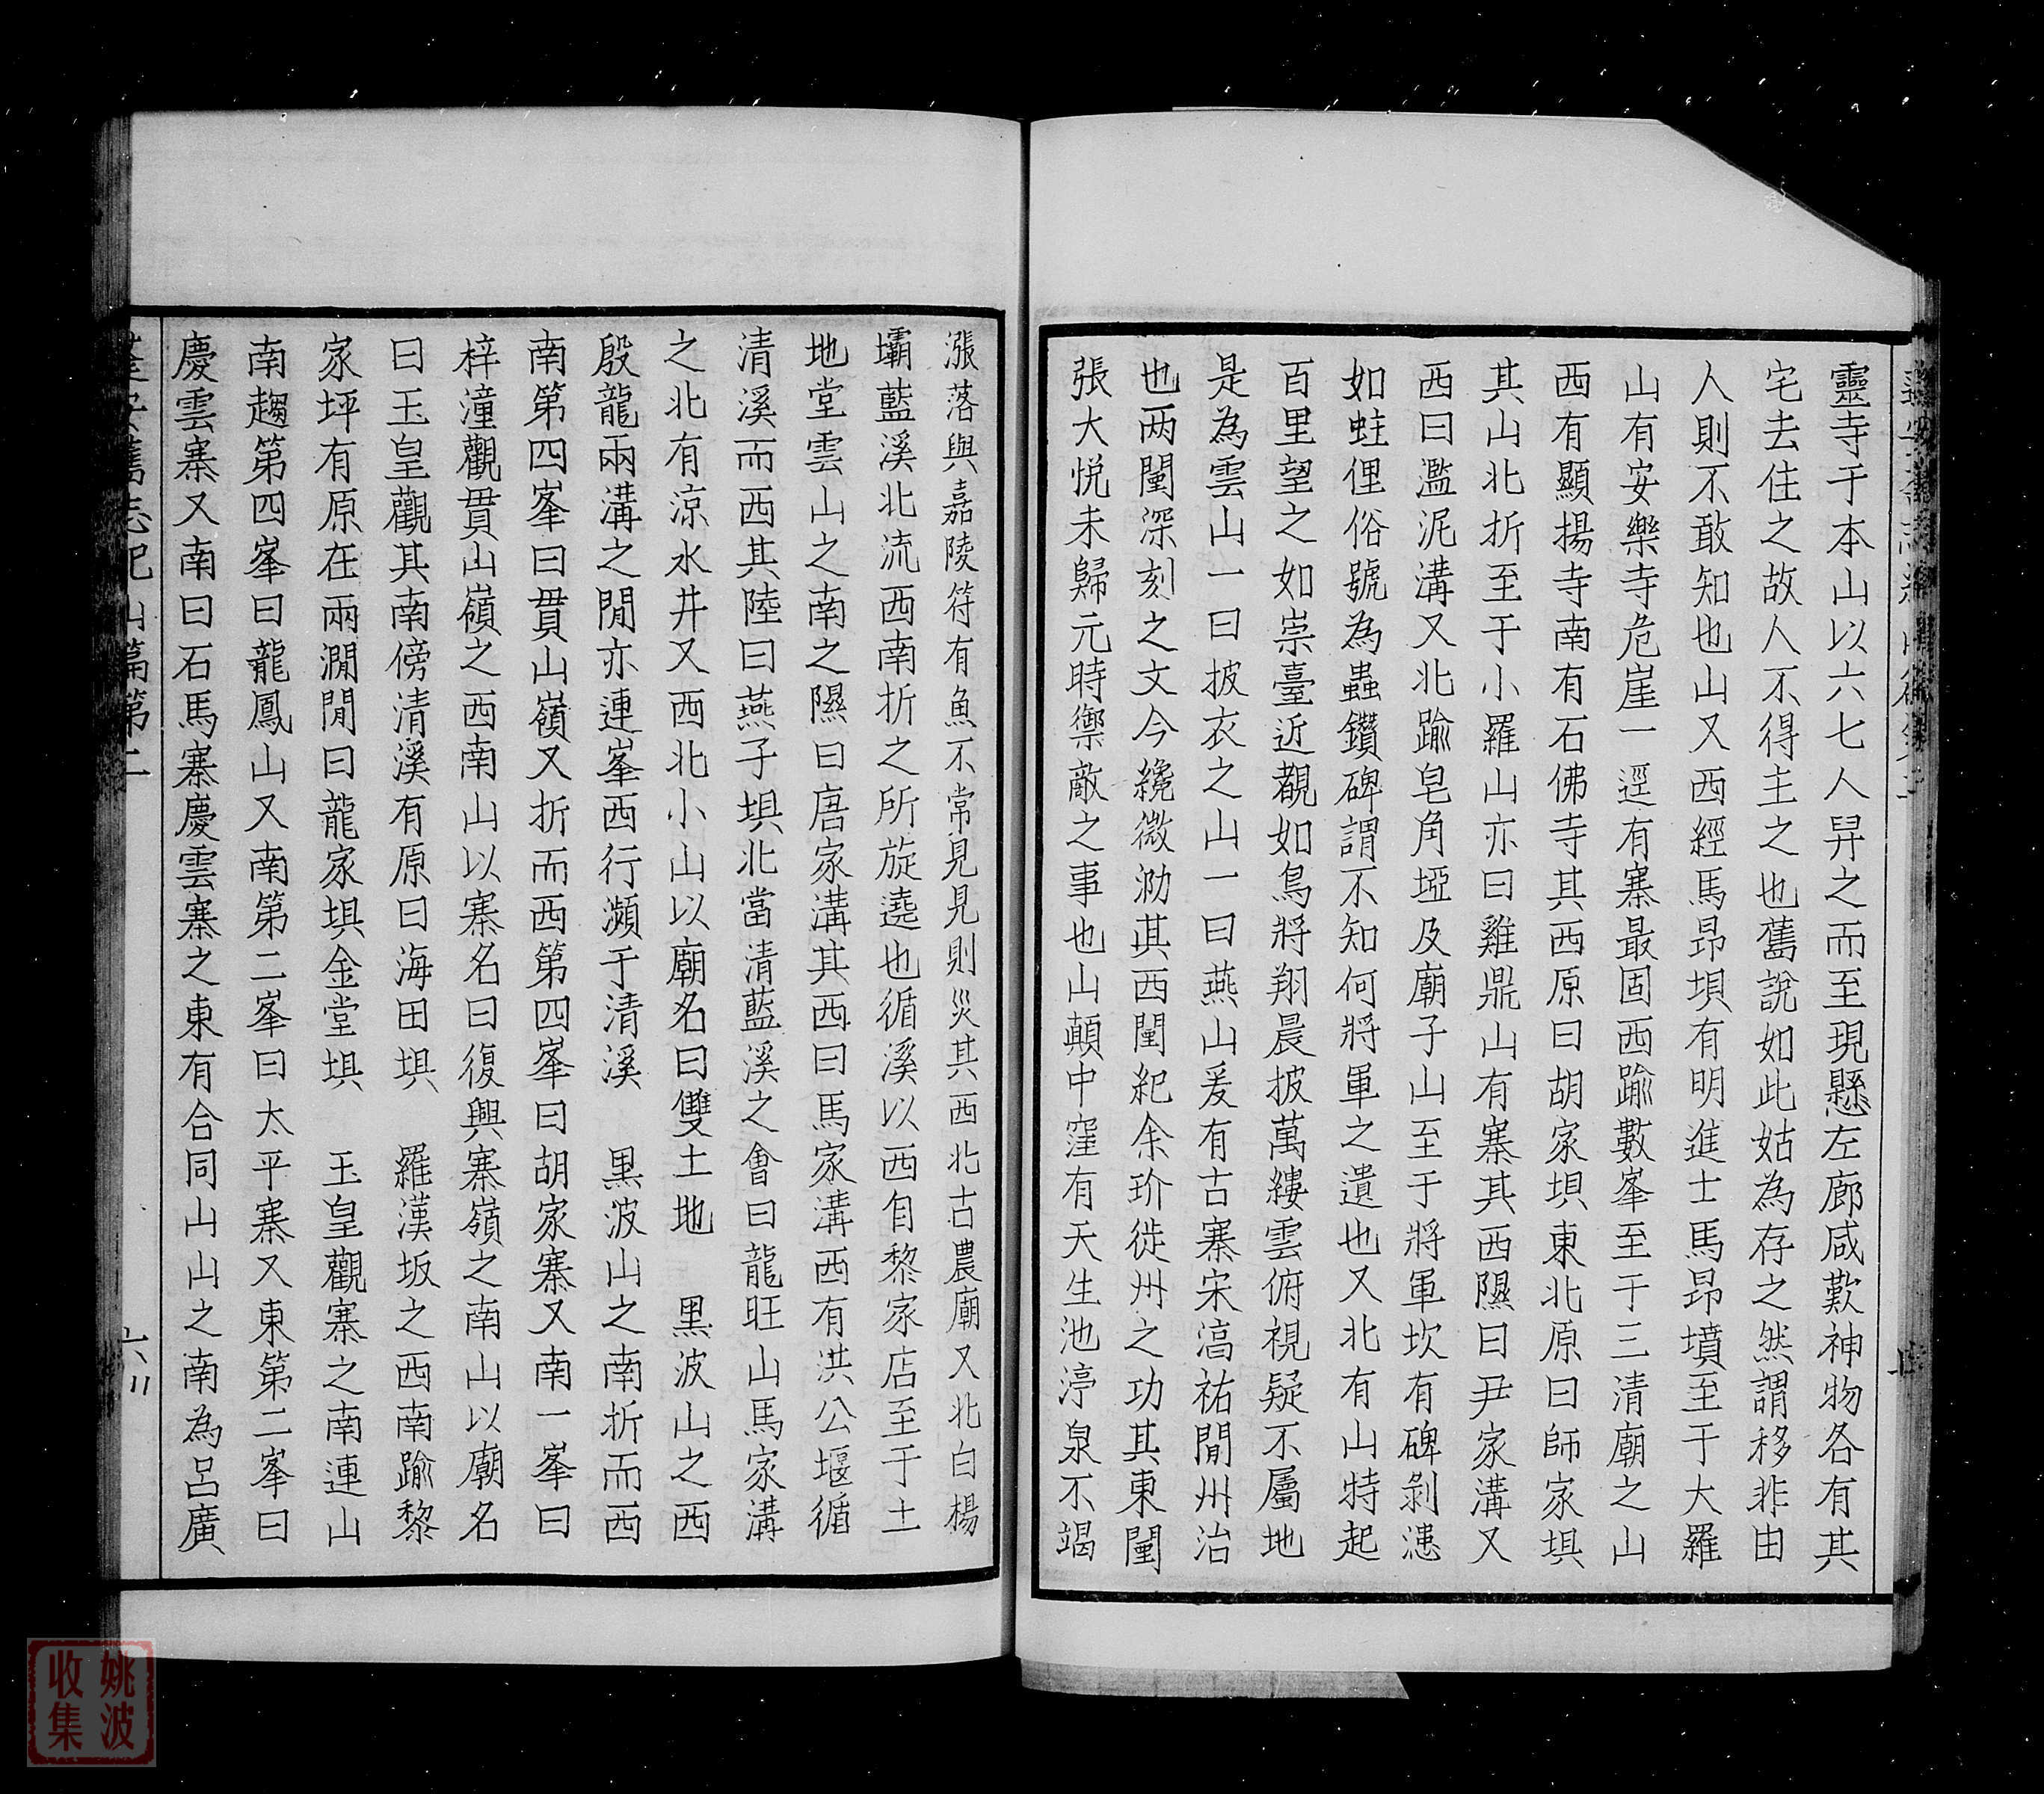 靈寺于本山以六七人舁之而至現懸左廊咸歎神物各有其
宅去住之故人不得主之也舊說如此姑為存之然謂移非由
人則不敢知也山又西經馬昂垻有明進士馬昂墳至于大羅
山有安樂寺危崖一逕有寨最固西踰數峯至于三清廟之山
西有顯揚寺南有石佛寺其西原曰胡家垻東北原曰師家垻
其山北折至于小羅山亦曰雞鼎山有寨其西隰曰尹家溝又
西曰濫泥溝又北踰皂角埡及廟子山至于將軍坎有碑剝漶
如蛀俚俗號為蟲鑽碑謂不知何將軍之遺也又北有山特起
百里望之如崇臺近覩如鳥將翔晨披萬縷雲俯視疑不屬地
是為雲山一曰披衣之山一曰燕山爰有古寨宋湻祐閒州治
也两闉深刻之文今纔微泐其西闉紀余玠徙州之功其東闉
張大悅未歸元時禦敵之事也山顛中窪有天生池渟泉不竭
漲落與嘉陵符有魚不常見見則災其西北古農廟又北白楊
壩藍溪北流西南折之所旋遶也循溪以西自黎家店至于土
地堂雲山之南之隰曰唐家溝其西曰馬家溝西有洪公堰循
清溪而西其陸曰燕子垻北當清藍溪之會曰龍旺山馬家溝
之北有涼水井又西北小山以廟名曰雙土地　黑波山之西
殷龍兩溝之閒亦連峯西行瀕于清溪　黑波山之南折而西
南第四峯曰貫山嶺又折而西第四峯曰胡家寨又南一峯曰
梓潼觀貫山嶺之西南山以寨名曰復興寨嶺之南山以廟名
曰玉皇觀其南傍清溪有原曰海田垻　羅漢坂之西南踰黎
家坪有原在兩澗閒曰龍家垻金堂垻　玉皇觀寨之南連山
南趨第四峯曰龍鳳山又南第二峯曰太平寨又東第二峯曰
慶雲寨又南曰石馬寨慶雲寨之東有合同山山之南為呂廣
蓬安舊志記山篇第二
六
姚波
收集